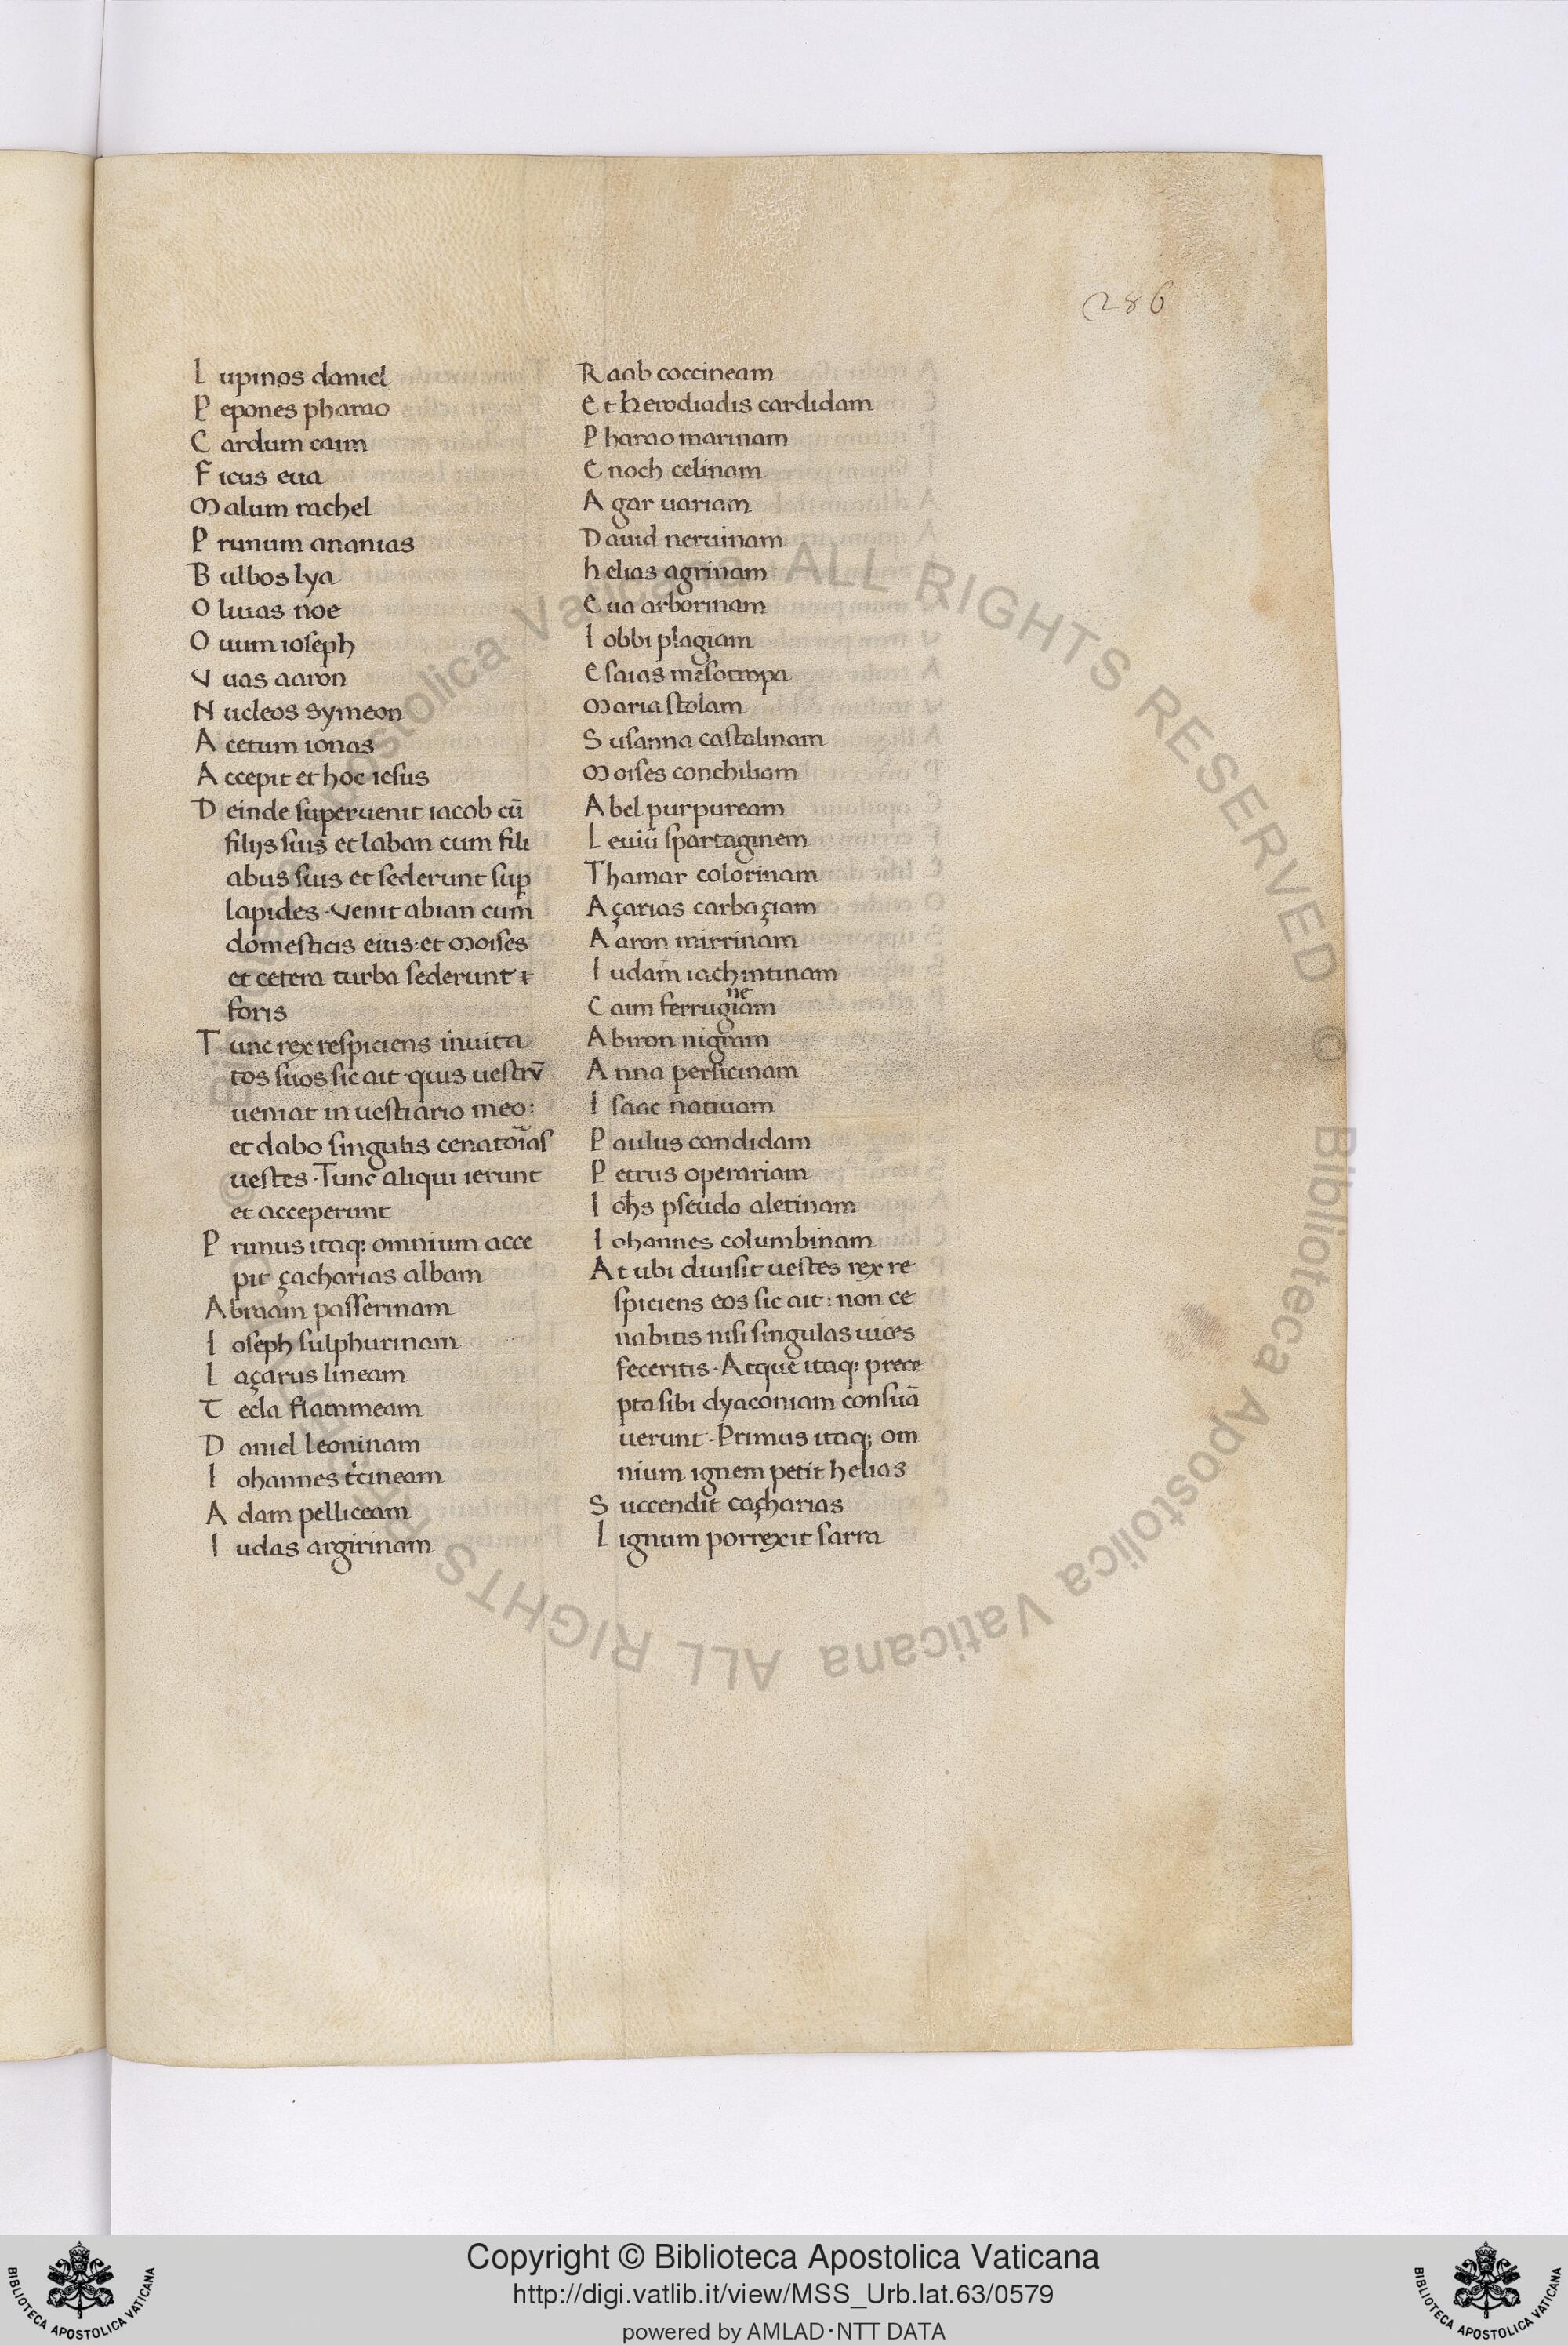 286
Lupinos daniel
Pepones pharao
Cardum caim
Ficus eua
Malum rachel
Prunum ananias
Bulbos lya
Oliuas noe
Ouum ioseph
Vuas aaron
Nucleos symeon
Acetum ionas
Accepit et hoc iesus
Deinde superuenit iacob cū
filijs suis et laban cum fili
abus suis et sederunt sup̄
lapides · Venit abian cum
domesticis eius: et Moises
et cetera turba sederunt
foris
Tunc rex respiciens inuita
tos suos sic ait · quis uestrū
ueniat in uestiario meo:
et dabo singulis cenatoīas
uestes · Tunc aliqui ierunt
et acceperunt
Primus itaq: omnium acce
pit çacharias albam
Abraam passerinam
Ioseph sulphurinam
Laçarus lineam
Tecla flammeam
Daniel leoninam
Iohannes t̄cineam
Adam pelliceam
Iudas argirinam
Raab coccineam
Et herodiadis cardidam
Pharao marinam
Enoch celinam
Agar uariam
Dauid neruinam
helias agrinam
Eua arborinam
Iobbi plagiam
Esaias mesotropa
Maria stolam
Susanna castalinam
Moises conchiliam
Abel purpuream
Leuiū spartaginem
Thamar colorinam
Açarias carbaçiam
Aaron mirrinam
Iudam iachintinam
ne
Caim ferrugiam
Abiron nigram
Anna persicinam
Isaac natiuam
Paulus candidam
Petrus operariam
Ioh̄s pseudo aletinam
Iohannes columbinam
At ubi diuisit uestes rex re
spiciens eos sic ait: non ce
nabitis nisi singulas uices
feceritis · Atque itaq: prece
pta sibi dyaconiam consuā
uerunt · Primus itaq; om
nium ignem petit helias
Succendit caçharias
Lignum porrexit sarra
© Biblioteca Apostolica Vaticana ALL RIGHTS RESERVED © Biblioteca Apostolica Vaticana ALL RIGHTS RESERVED
Copyright © Biblioteca Apostolica Vaticana
http://digi.vatlib.it/view/MSS_Urb.lat.63/0579
powered by AMLAD·NTT DATA
BIBLIOTECA APOSTOLICA VATICANA
BIBLIOTECA APOSTOLICA VATICANA